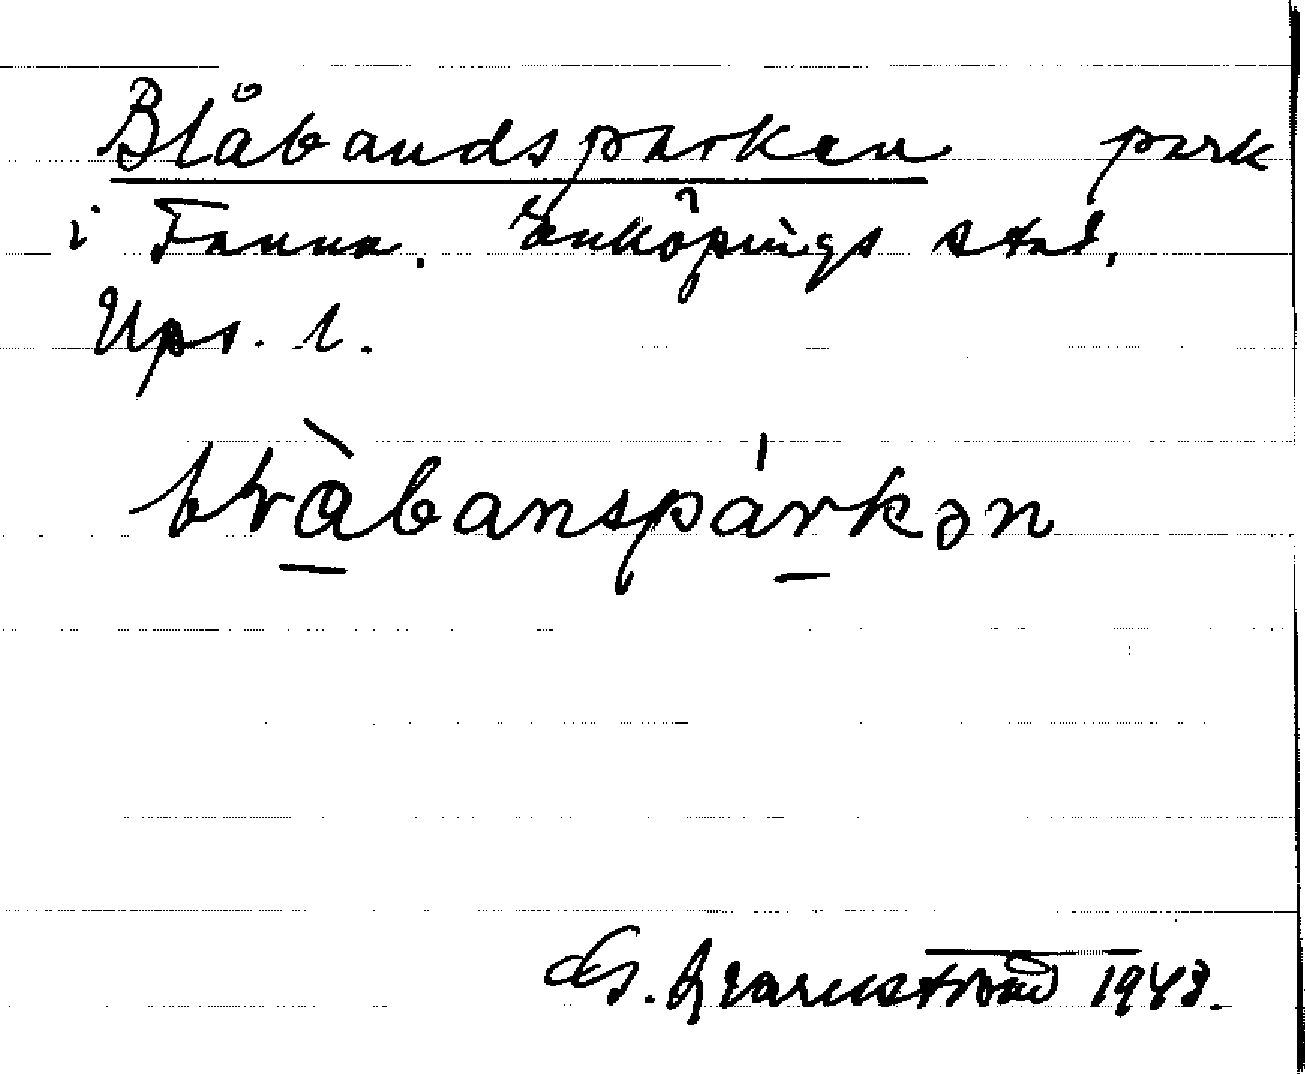 Blåbandsparken park
i Fanna. Enköpings stad,
Ups. l.
blàbanspárkən
1943.